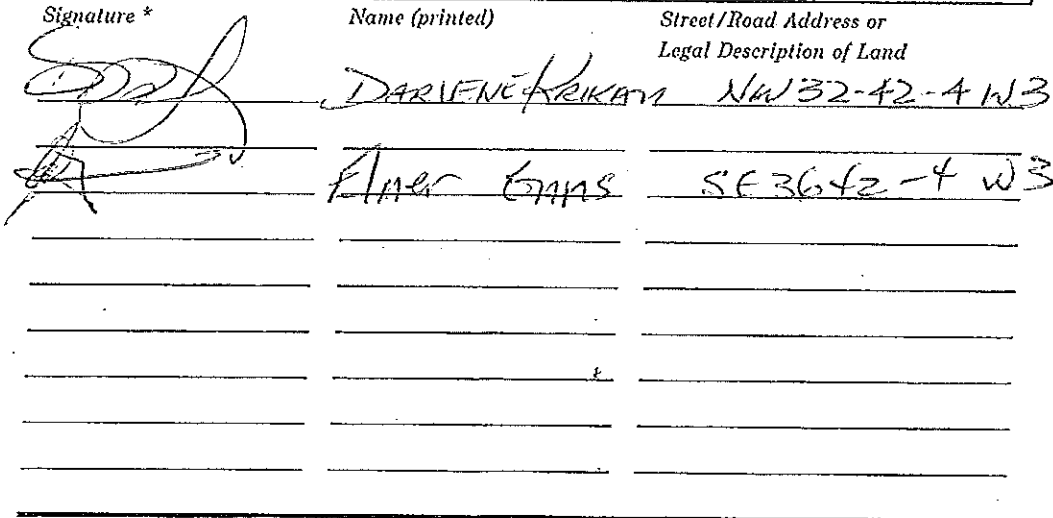 Signature * Name (printed) Street/Road Address or
Legal Description of Land
DARLENE KRIKAU NW 32-42-4 W3
Elmer Enns SE 36 42-4 W3